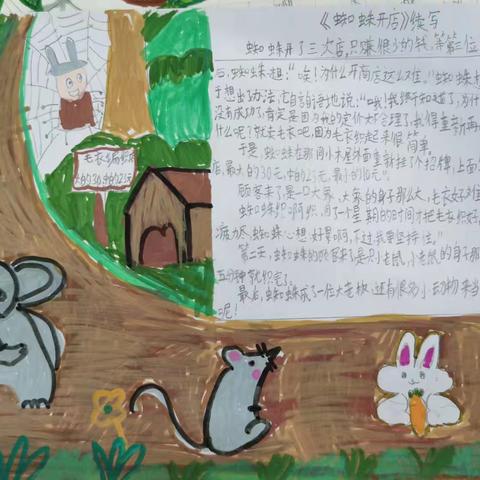 《蜘蛛开店》续写
蜘蛛开了三次店,只赚很少的钱,等第三位
后,蜘蛛想:“唉!为什么开商店这么难,”蜘蛛
于想出办法,它自言自语地说:“哦!我终于知道了,为什
没有成功了,肯定是因为我的定价太不合理了,我得重新再
什么呢?就卖毛衣吧,因为毛衣织起来很简单。
于是,蜘蛛在那间小木屋外面重新挂了个招牌,上面
店,最大的30元,中的23元,最小的10元”。
顾客来了,是一只大象,大象的身子那么大,毛衣好难
蜘蛛织啊织,用了一个星期的时间才把毛衣织好
心想:好累啊,不过,我要坚持住。”
第二天,蜘蛛的顾客来了,是只小老鼠,小老鼠的身子那
五分钟就织完了。
最后,蜘蛛成了一位大老板,还有很多小动物来当
呢!
毛衣编织店
大的30,中的23元